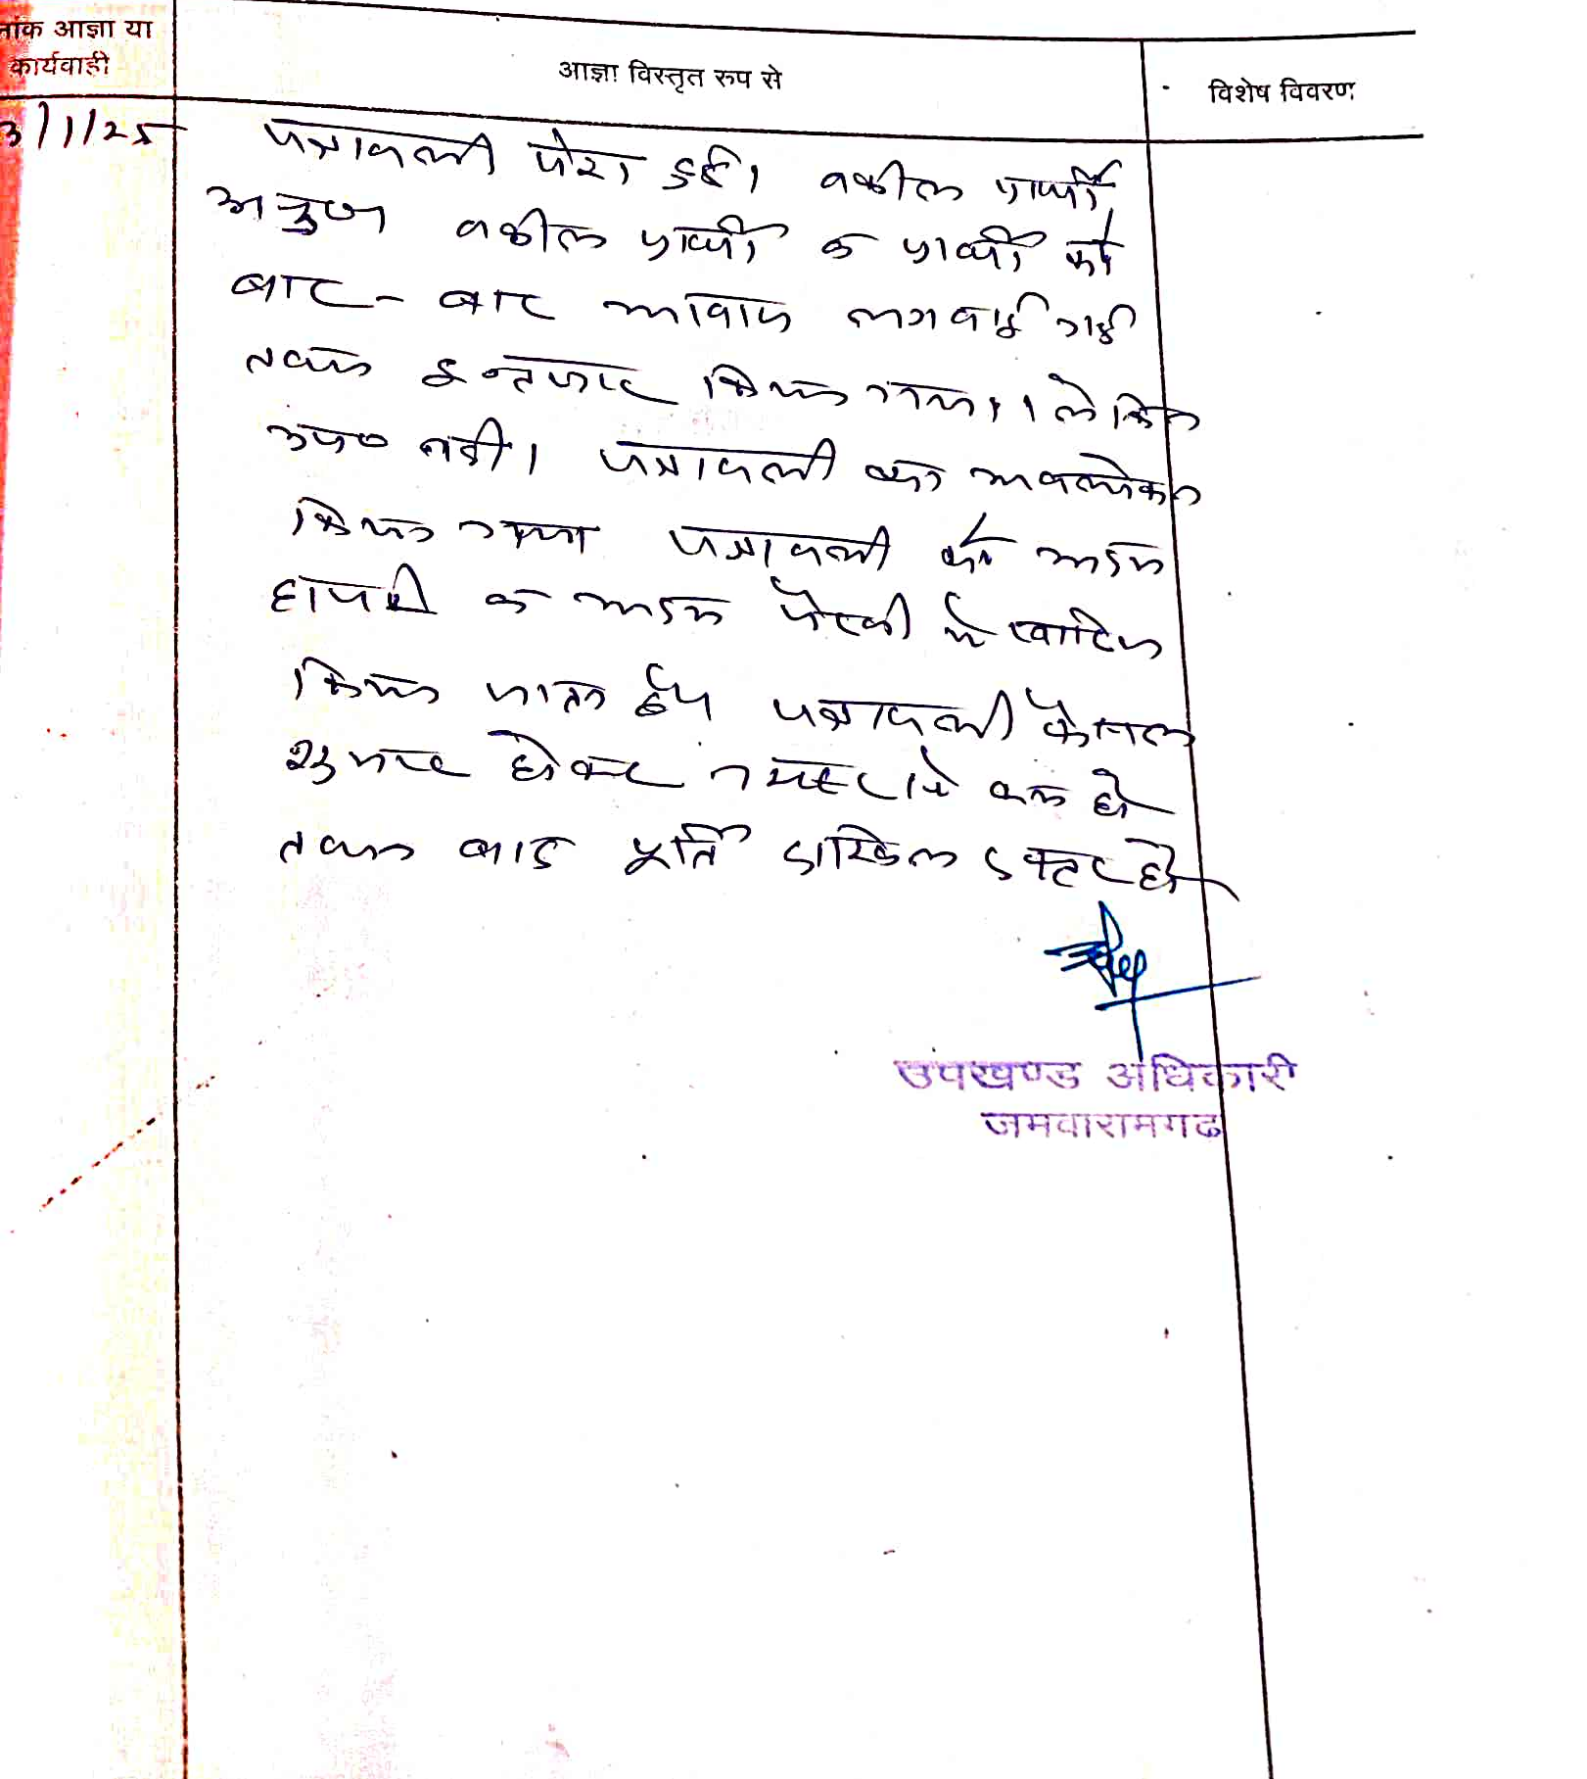 नांक आज्ञा या
कार्यवाही
आज्ञा विस्तृत रुप से
विशेष विवरण
3/1/25
पत्रावली पेश हुई। वकील प्रार्थी
अनु० वकील प्रार्थी व प्रार्थी को
बार-बार आवाज लगवाई गई
तथा इन्तजार किया गया। लेकिन
उप० नहीं। पत्रावली का अवलोकन
किया गया पत्रावली को अदम
हाजरी व अदम पैरवी में खारिज
किया जाता है। पत्रावली फैसल
शुमार होकर नम्बर से कम हो
तथा बाद पूर्ति दाखिल दफ्तर हो
उपखण्ड अधिकारी
जमवारामगढ